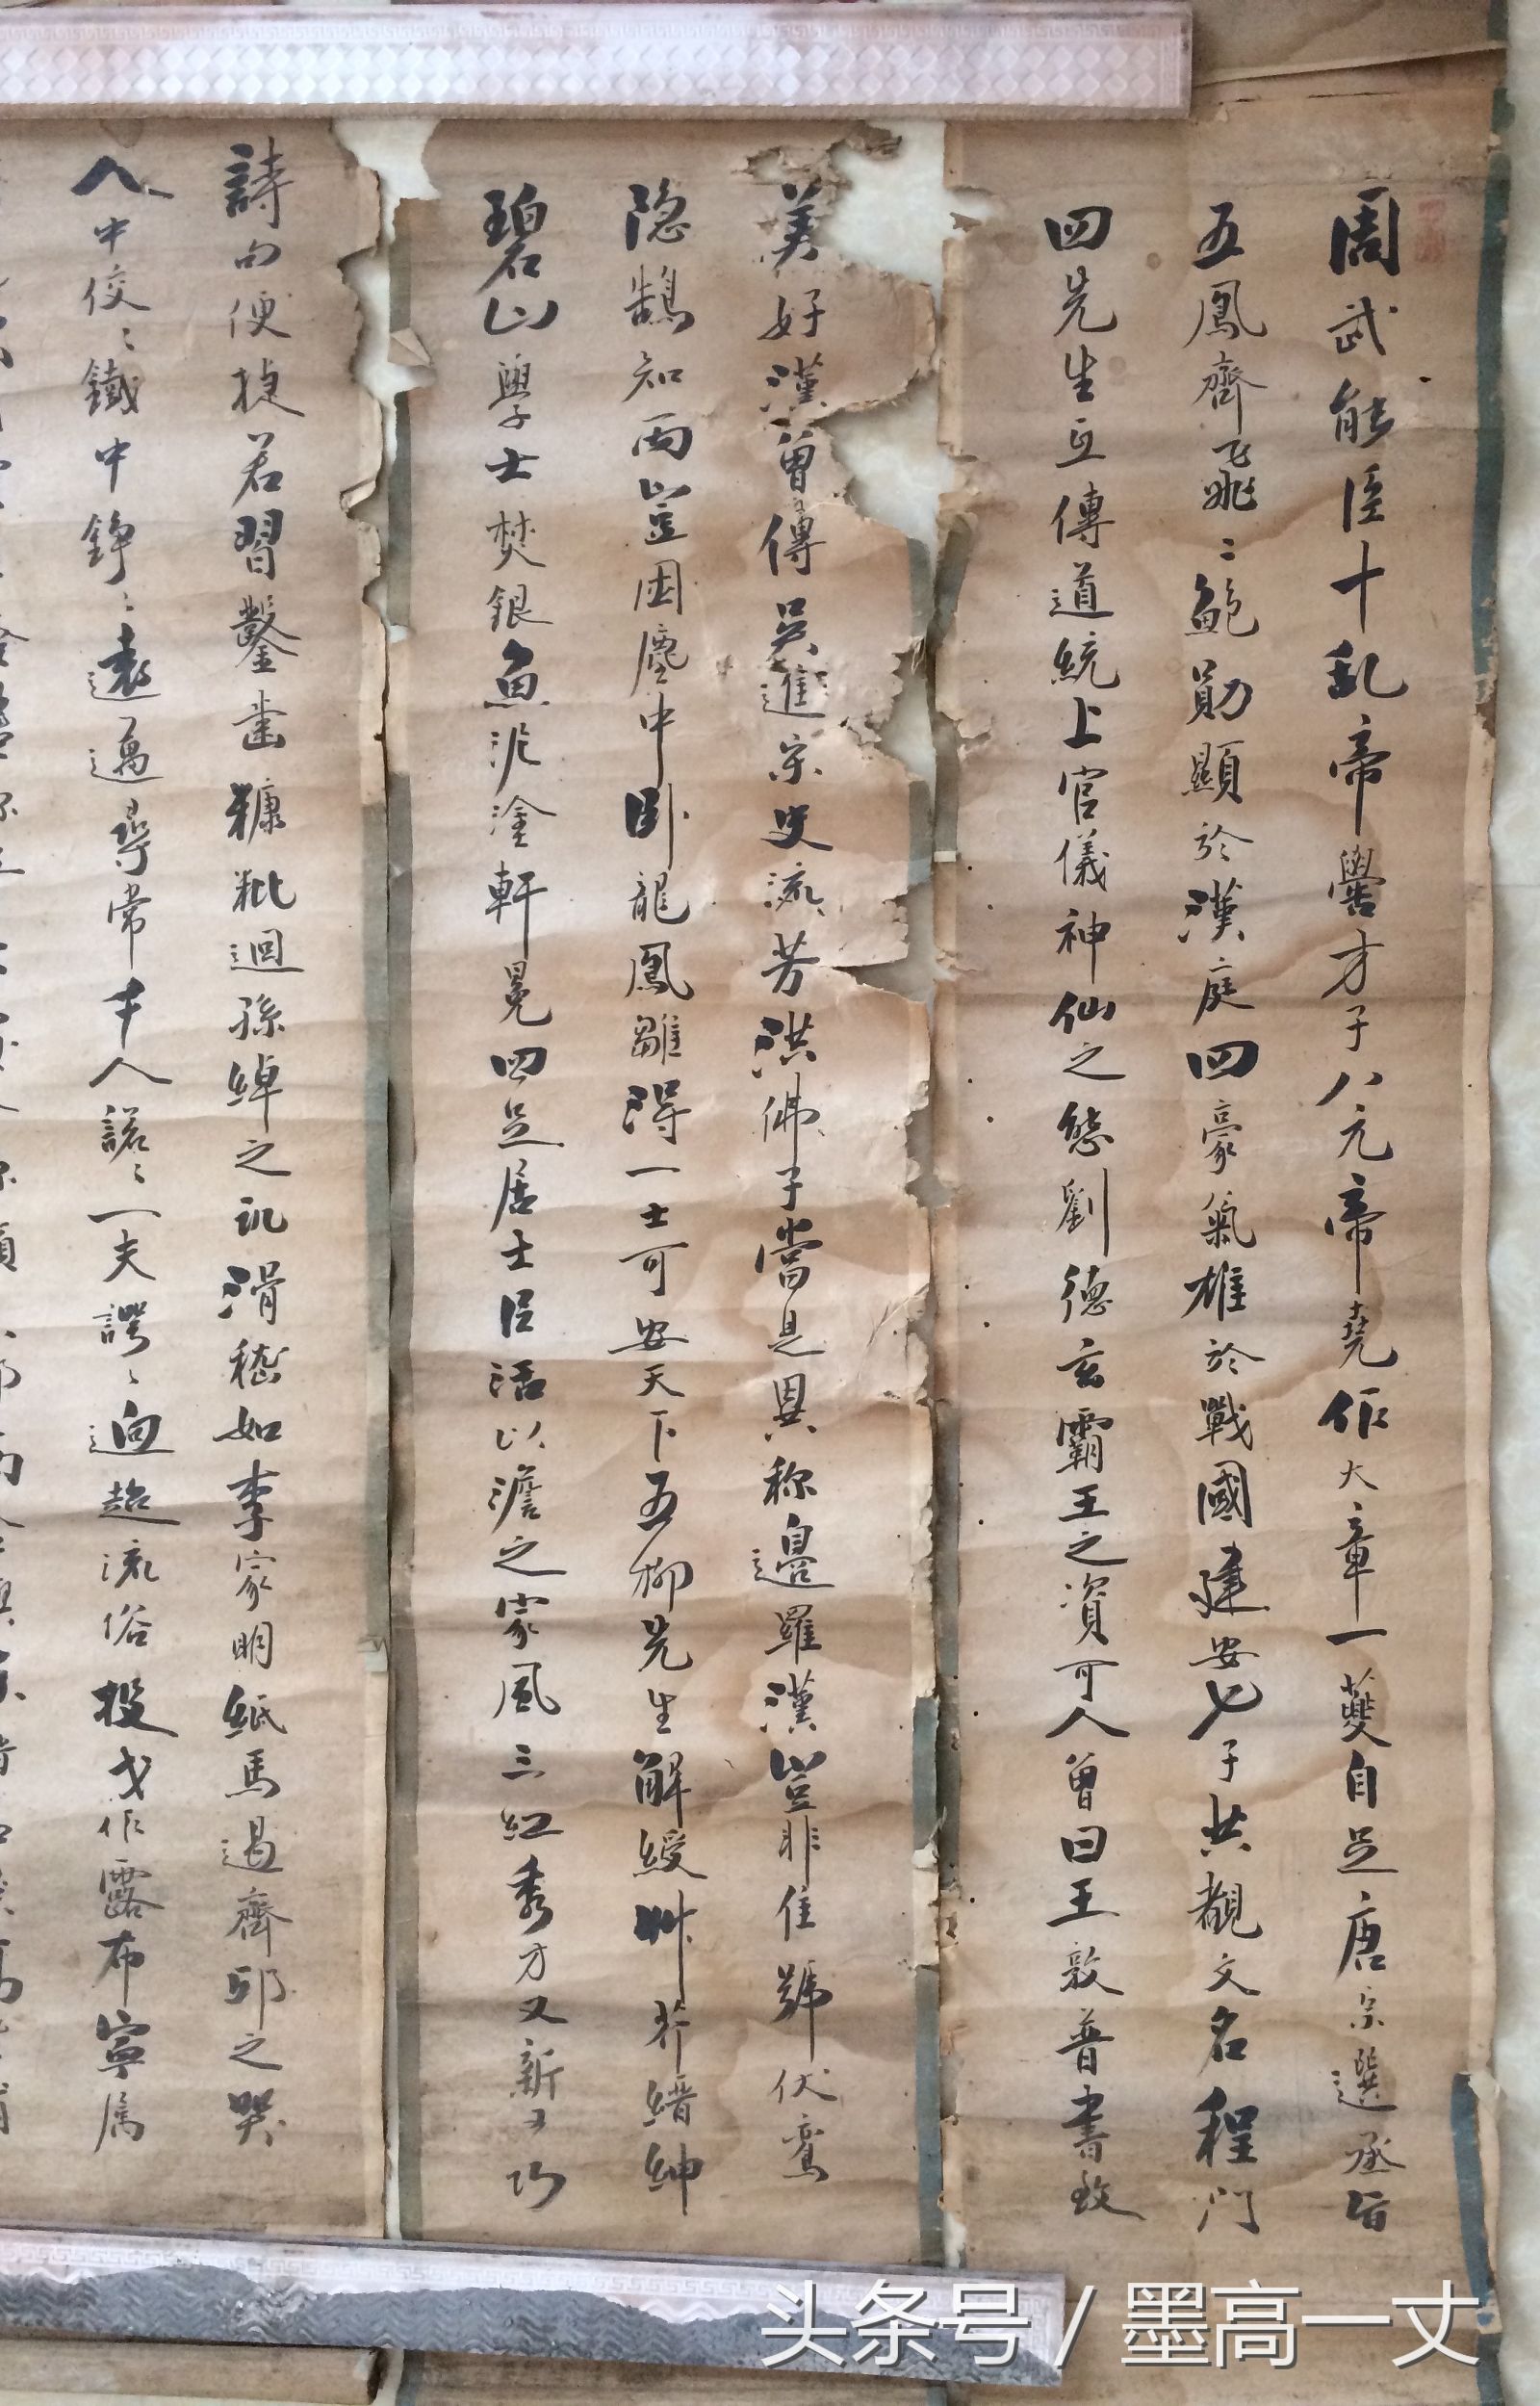 周武能臣十乱帝嚳才子八元帝堯作大章一夔自足唐宗選丞旨
五鳳齊飛二鮑勛顯於漢庭四豪氣雄於戰國建安七子共觀文名程門
四先生互傳道統上官儀神仙之態劉德玄霸王之資可人曾曰王敦普書致
美好漢曾傳吳進宋史流芳洪佛子當是異称邊羅漢豈非佳號伏鸞
隐鵠知两豈困塵中卧龍鳳雛得一士可安天下五柳先生解綬艸芥縉紳
碧山學士焚銀魚泥塗軒冕四足居士臣活以澹之家風三紅秀才又新又巧
詩句便捷君習鑿齒糠粃迴孫綽之訊滑稽如李家明紙馬過齊邱之哭
人中佼〻鐵中錚〻遠邁尋常千人諾〻一夫諤〻迥超流俗投戈作露布寧属